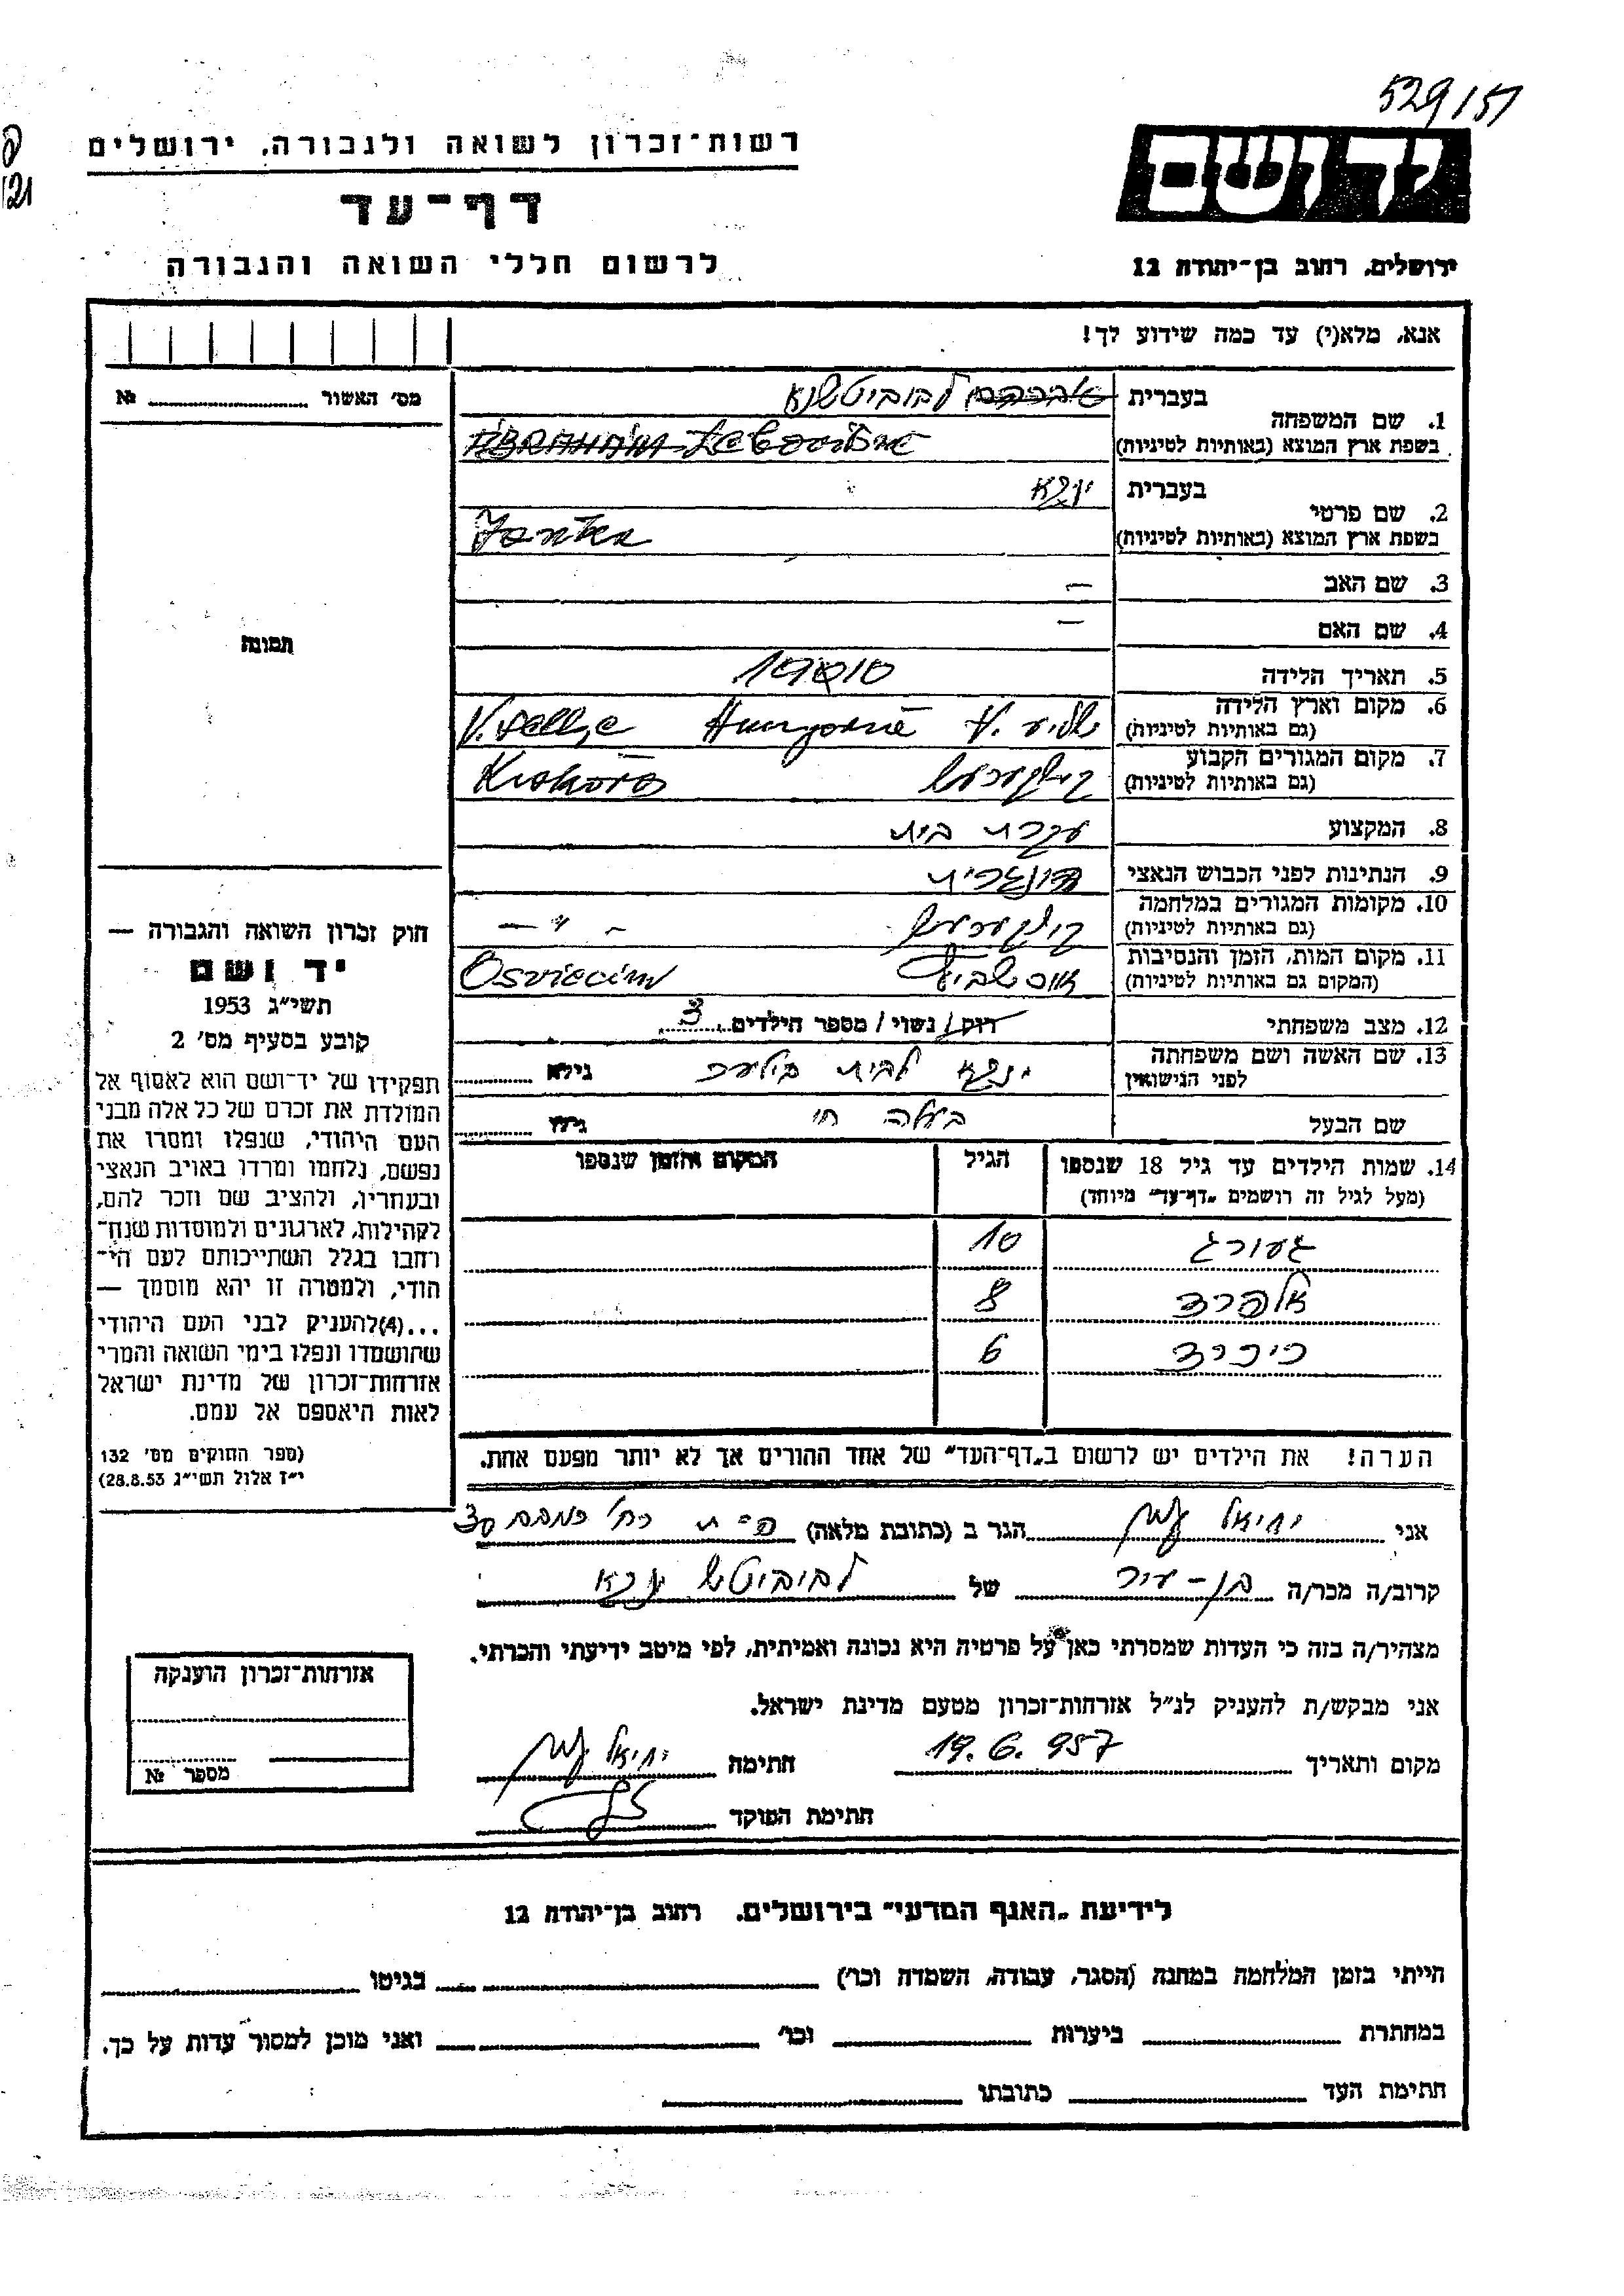 529/51
רשות־זכרון לשואה ולגבורה, ירושלים
דף־עד
לרשום חללי השואה והגבורה
יד ושם
ירושלים, רחוב בן־יהודה 12
אנא, מלא(י) עד כמה שידוע לך!
מס׳ האשור №
1. שם המשפחה
בעברית אברהם לבוביטשנא
בשפת ארץ המוצא (באותיות לטיניות) ABRAHAM
2. שם פרטי
בעברית ינקא
בשפת ארץ המוצא (באותיות לטיניות) Janka
3. שם האב —
4. שם האם —
5. תאריך הלידה 1910
6. מקום וארץ הלידה
(גם באותיות לטיניות)
7. מקום המגורים הקבוע
(גם באותיות לטיניות)
8. המקצוע עקרת בית
9. הנתינות לפני הכבוש הנאצי הונגרית
10. מקומות המגורים במלחמה — " —
(גם באותיות לטיניות)
11. מקום המות, הזמן והנסיבות אושביץ Osviecim
(המקום גם באותיות לטיניות)
12. מצב משפחתי רוק/ נשוי/ מספר הילדים 3
13. שם האשה ושם משפחתה ינקא לבית גילא
לפני הנישואין
שם הבעל בילה חי גילו
14. שמות הילדים עד גיל 18 שנספו הגיל המקום והזמן שנספו
(מעל לגיל זה רושמים „דף־עד” מיוחד)
געורג 10
אלפרד 8
ריכרד 6
הערה! את הילדים יש לרשום ב„דף־העד” של אחד ההורים אך לא יותר מפעם אחת.
תמונה
חוק זכרון השואה והגבורה —
יד ושם
תשי״ג 1953
קובע בסעיף מס׳ 2
תפקידו של יד־ושם הוא לאסוף אל
המולדת את זכרם של כל אלה מבני
העם היהודי, שנפלו ומסרו את
נפשם, נלחמו ומרדו באויב הנאצי
ובעוזריו, ולהציב שם וזכר להם,
לקהילות, לארגונים ולמוסדות שנח־
רחבו בגלל השתייכותם לעם הי־
הודי, ולמטרה זו יהא מוסמך —
...(4)להעניק לבני העם היהודי
שהושמדו ונפלו בימי השואה והמרי
אזרחות־זכרון של מדינת ישראל
לאות היאספם אל עמם.
(ספר החוקים מס׳ 132
י״ז אלול תשי״ג 28.8.53)
אני יחיאל הגר ב (כתובת מלאה)
קרוב/ה מכר/ה בן-עיר של
מצהיר/ה בזה כי העדות שמסרתי כאן על פרטיה היא נכונה ואמיתית, לפי מיטב ידיעתי והכרתי.
אני מבקש/ת להעניק לנ״ל אזרחות־זכרון מטעם מדינת ישראל.
מקום ותאריך 19.6.957 חתימה יחיאל
חתימת הפוקד
אזרחות־זכרון הוענקה
מספר №
לידיעת „האגף המדעי” בירושלים, רחוב בן־יהודה 12
הייתי בזמן המלחמה במחנה (הסגר, עבודה, השמדה וכו׳) בגיטו
במחתרת ביערות וכו׳ ואני מוכן למסור עדות על כך.
חתימת העד כתובתו